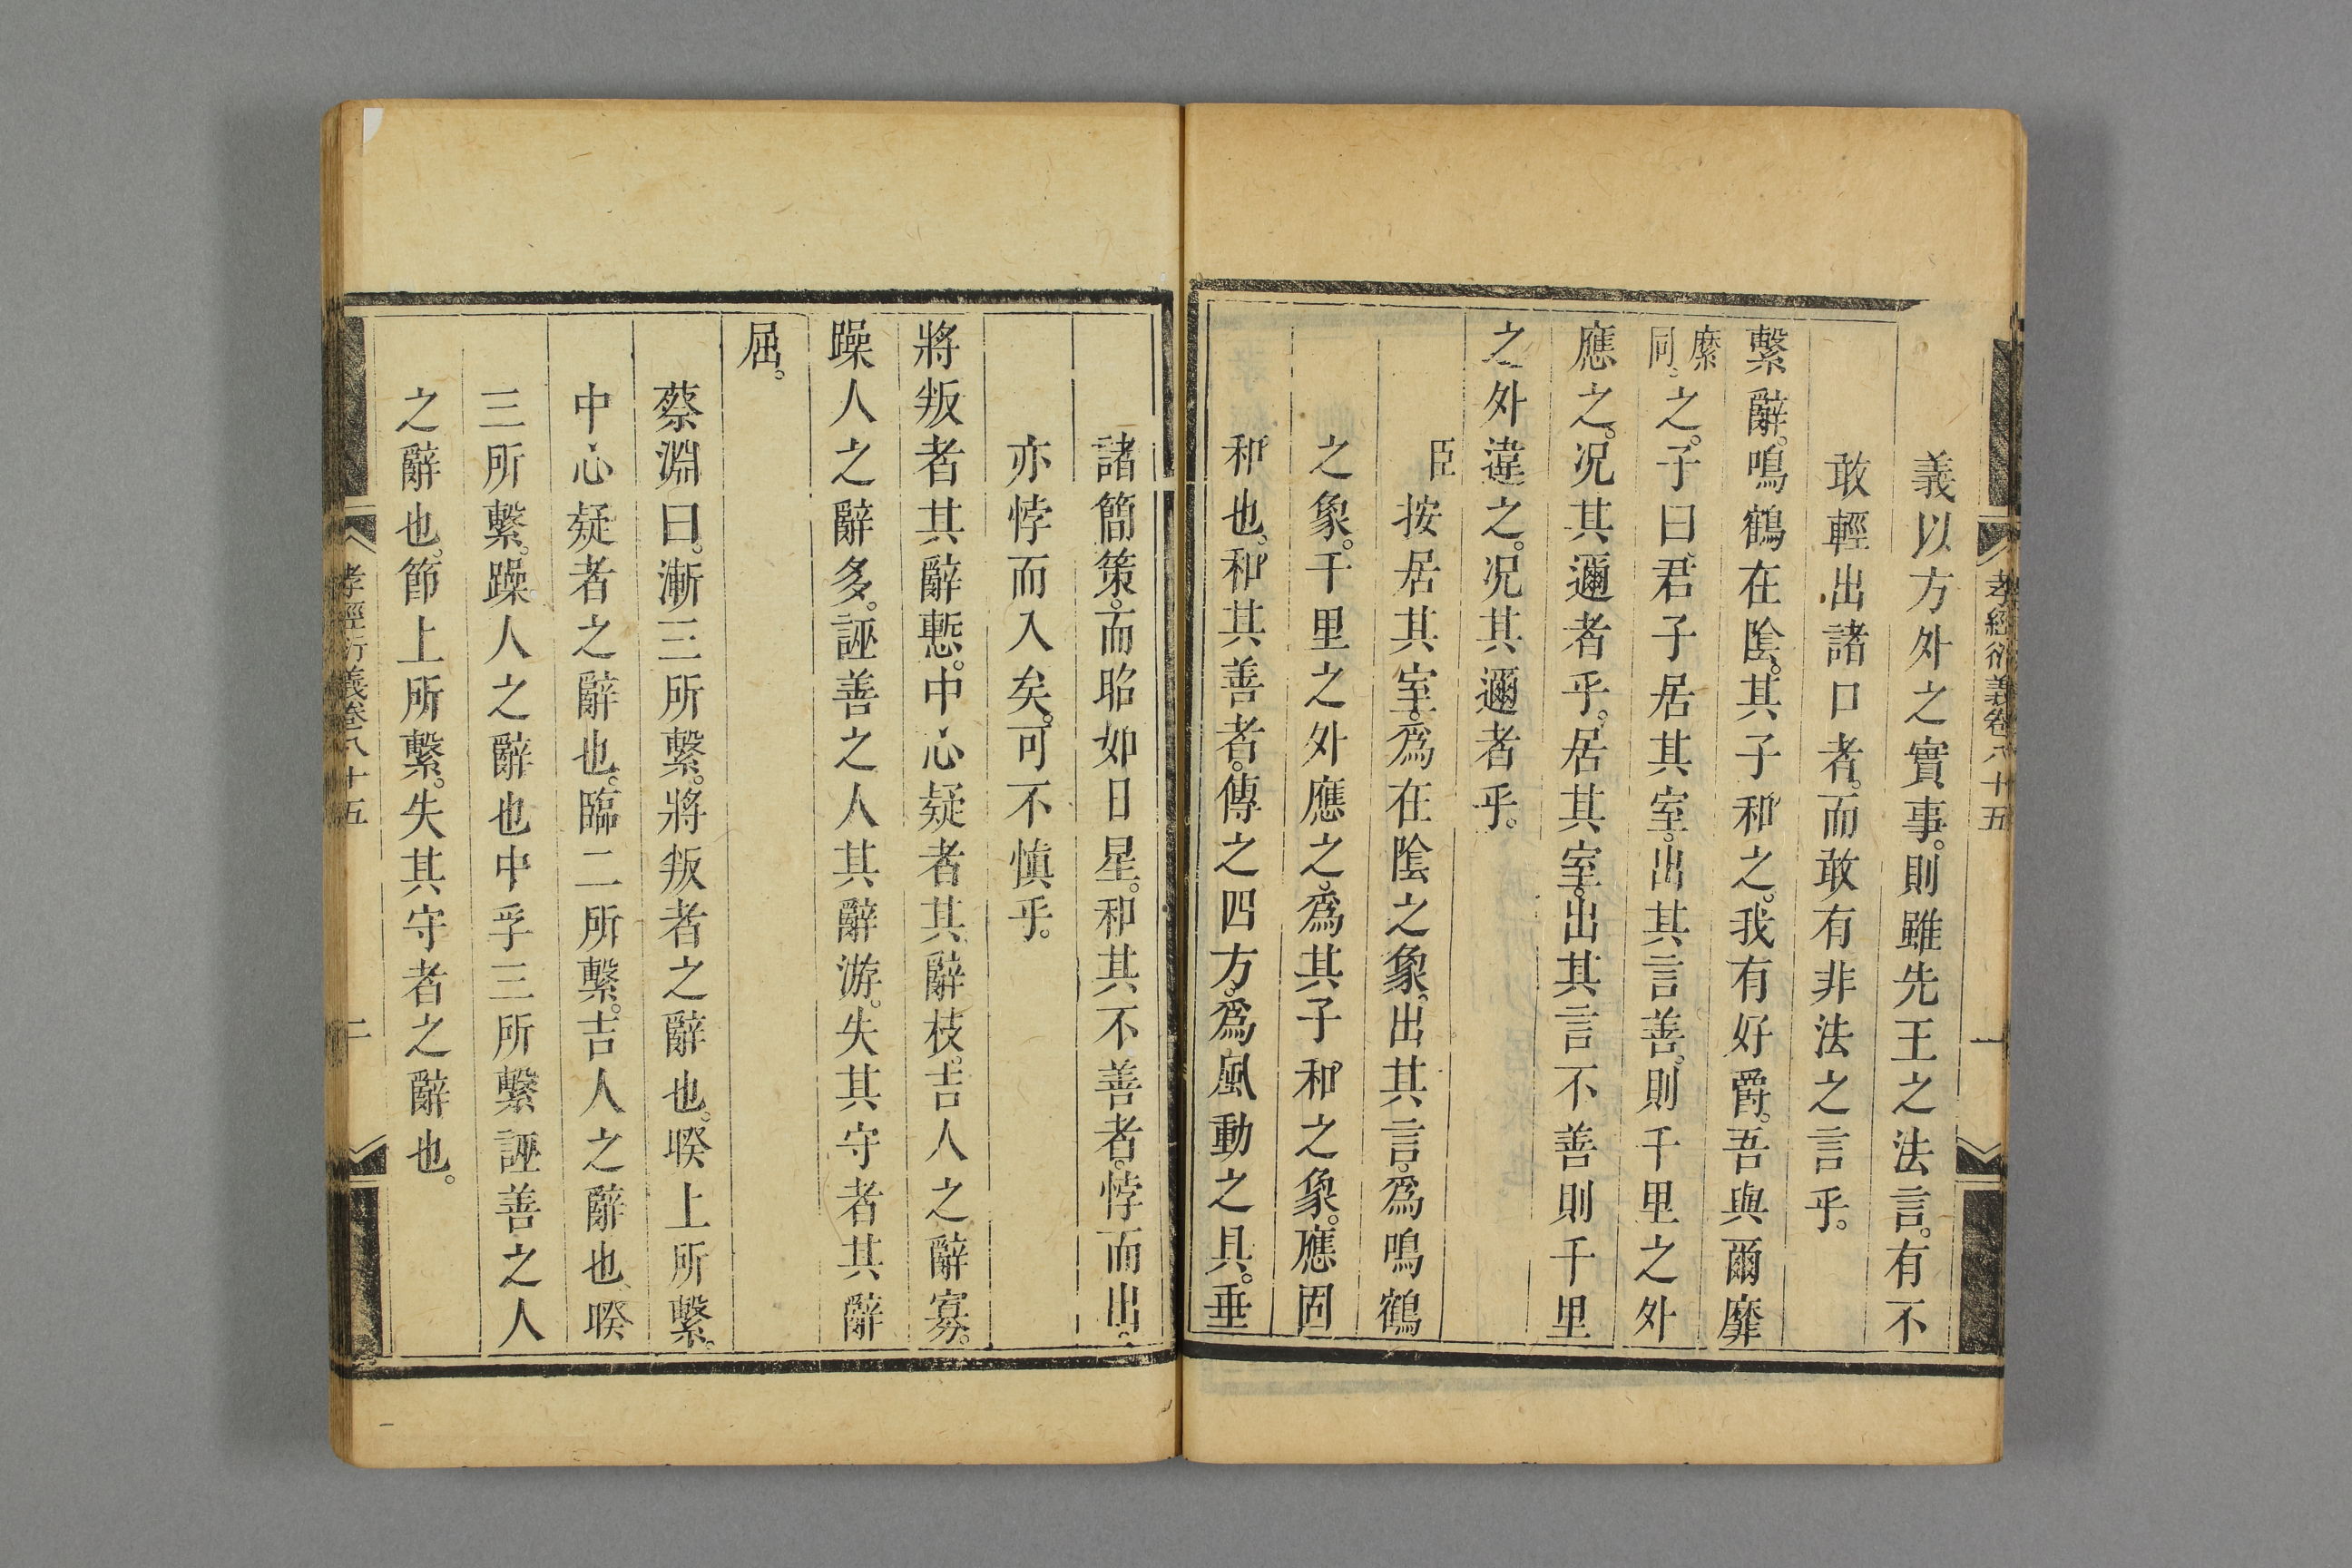 孝經衍義卷八十五
一
義以方外之實事。則雖先王之法言。有不
敢輕出諸口者。而敢有非法之言乎。
繫辭。鳴鶴在陰。其子和之。我有好爵。吾與爾靡
縻
同。
之。子曰。君子居其室。出其言善。則千里之外
應之。况其邇者乎。居其室。出其言不善則千里
之外違之。况其邇者乎。
臣按居其室。爲在陰之象。出其言。爲鳴鶴
之象。千里之外應之。爲其子和之象。應固
和也。和其善者。傳之四方。爲風動之具。垂
諸簡策。而昭如日星。和其不善者。悖而出。
亦悖而入矣。可不愼乎。
將叛者其辭慙。中心疑者其辭枝。吉人之辭寡。
躁人之辭多。誣善之人其辭游。失其守者其辭
屈。
蔡淵曰。漸三所繫。將叛者之辭也。睽上所繫。
中心疑者之辭也。臨二所繫。吉人之辭也。睽
三所繫。躁人之辭也中孚三所繫誣善之人
之辭也。節上所繫。失其守者之辭也。
孝經衍義卷八十五
二